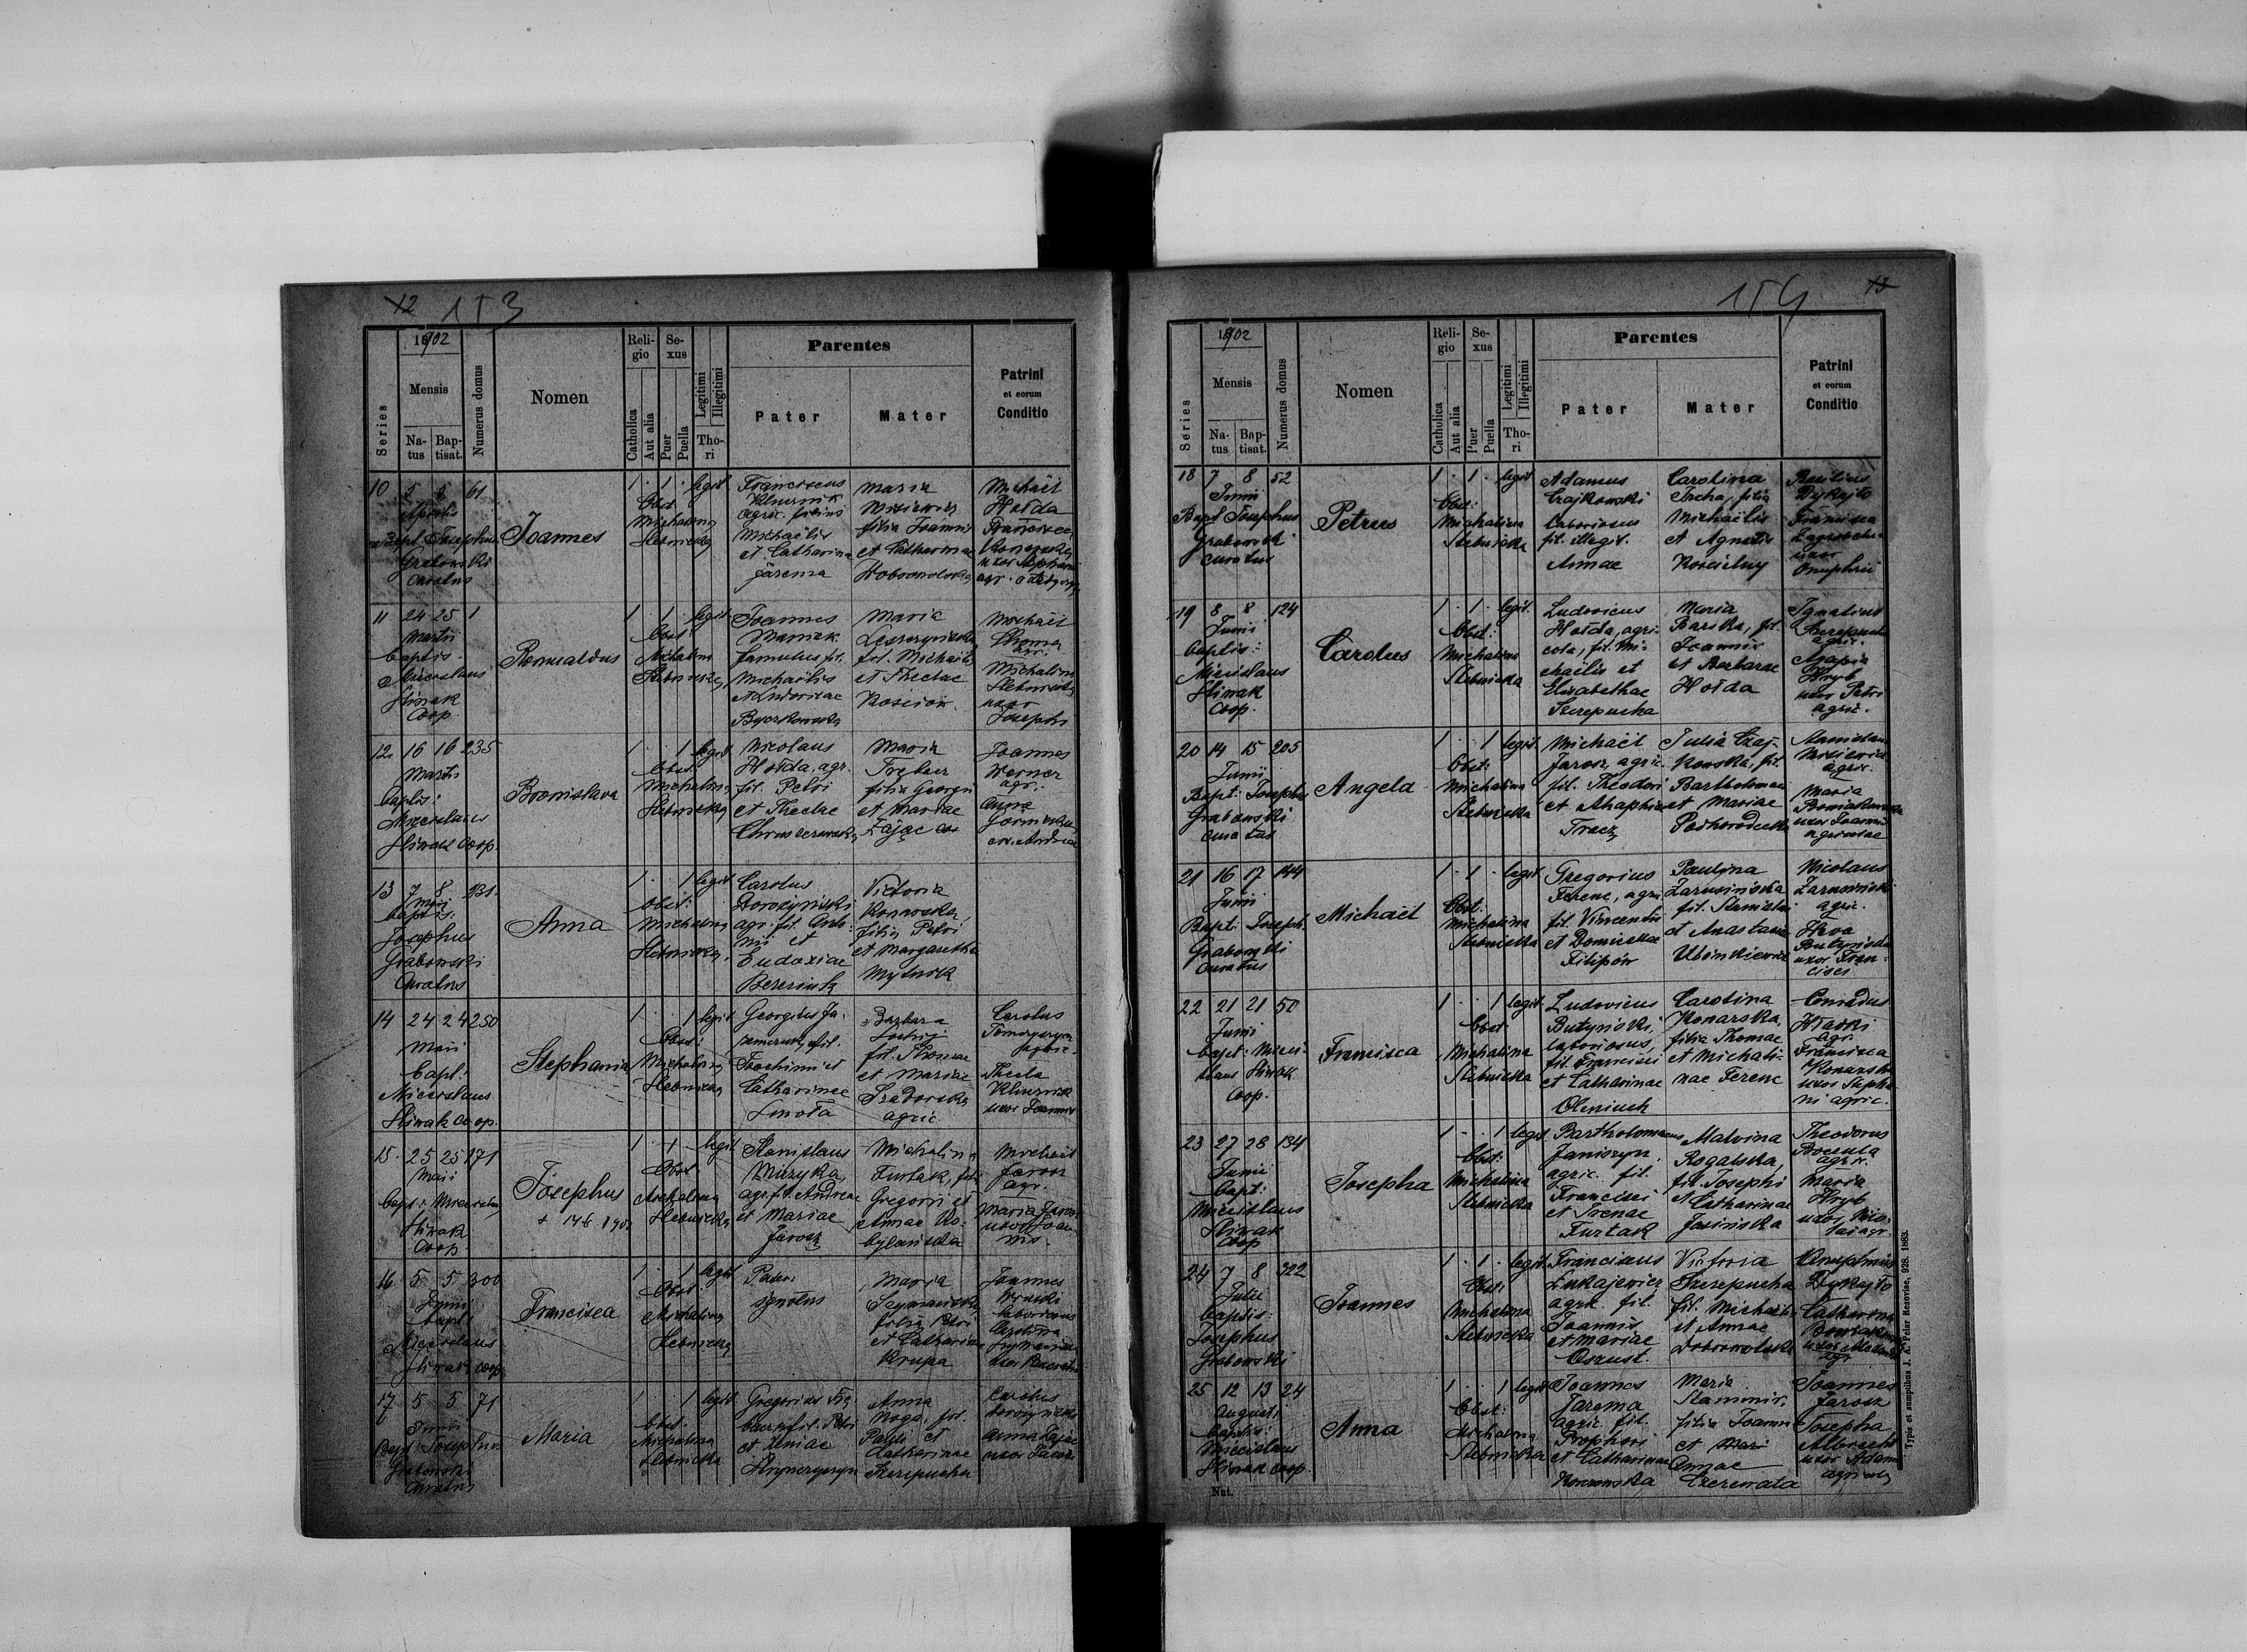 12 153
1902
Series
Mensis
Natus
Baptisat.
Numerus domus
Nomen
Religio
Catholica
Aut alia
Sexus
Puer
Puella
Legitimi
Illegitimi
Thori
Parentes
Pater
Mater
Patrini
et eorum
Conditio
10 5 6 61
Aprilis
Bapt. Josephus
Grabowski
Curatus
Joannes
1 1 legit
Obst.
Michalina
Stebnicka
Franciscus
Kluznik
agric. filius
Michaëlis
et Catharina
Jarema
Maria
filia Joannis
et Catharinae
Michaël
Hołda
Francisca
uxor Stephani
11 24 25 1
Martii
baptis.
Miecislaus
Sliwak
Coop
Romualdus
1 1 legit
Obst:
Michalina
Stebnicka
Joannes
Maniak
famulus fil.
Michaëlis
et Ludovicae
Maria
fil. Michaëlis
et Theclae
Kościów
Michaël
Thoma
agr.
Michalina
Stebnicka
uxor
Josephi
12 16 16 235
Martii
baptis:
Miecislaus
Sliwak Coop.
Bronislava
1 1 legit
Obst.
Michalina
Stebnicka
Nicolaus
Hołda, agr.
fil. Petri
et Theclae
Maria
Trębacz
filia Georgii
et Mariae
Zając
Joannes
Werner
agr.
Anna
ux. Andreae
13 7 8 231
Maji
baptis.
Josephus
Grabowski
Curatus
Anna
1 1 legit
Obst:
Michalina
Stebnicka
Carolus
Dorożyński
agr. fil. Anto-
nii et
Eudoxiae
Victoria
filia Petri
et Margaretha
Mytnik
14 24 24 250
Maji
bapt:
Miecislaus
Sliwak Coop.
Stephania
1 1 legit
Obst:
Michalina
Stebnicka
Georgius Ja-
Joachimi et
Catharinae
Smoła
Barbara
fil. Thomae
et Mariae
agric.
Carolus
Thecla
Kluznik
uxor Joannis
15. 25 25 171
Maji
bapt: Miecislaus
Sliwak
Coop.
Josephus
1 1 legit
Obst
Michalina
Stebnicka
Stanislaus
Muzyka,
agr. fil. Andreae
et Mariae
Jarosz
Michalina
Furtak, filia
Gregorii et
Annae Ko-
bylańska
Michaël
Jarosz
agr.
Maria Jarosz
uxor Joan-
nis.
16 5 5 300
Junii
bapt:
Miecislaus
Sliwak coop
Francisca
1 1 legit
Obst
Michalina
Stebnicka
Pater
ignotus
Maria
filia Petri
et Catharinae
Krupa
Joannes
laboriosus
Carolina
17 5 5 71
Junii
Bapt: Josephus
Grabowski
Curatus
Maria
1 1 legit
Obst.
Michalina
Stebnicka
Gregorius
et Xeniae
Hrynczyszyn
Anna
Noga, fil.
Pauli et
Catharinae
Szerepucha
Carolus
Anna Zając
uxor Jacobi
154 13
1902
Series
Mensis
Natus
Baptisat.
Numerus domus
Nomen
Religio
Catholica
Aut alia
Sexus
Puer
Puella
Legitimi
Illegitimi
Thori
Parentes
Pater
Mater
Patrini
et eorum
Conditio
18 7 8 52
Junii
Bapt Josephus
Grabowski
Curatus
Petrus
1 1 legit
Obst:
Michalina
Stebnicka
Adamus
Czajkowski
laboriosus
fil. illegit.
Annae
Carolina
Jucha, filia
Michaëlis
et Agnetis
Kościelny
Basilius
Dykajło
Francisca
uxor
Onuphrii
19 8 8 124
Junii
baptis:
Miecislaus
Sliwak
Coop.
Carolus
1 1 legit.
Obst:
Michalina
Stebnicka
Ludovicus
Hołda, agri-
cola, fil. Mi-
chaëlis et
Elisabethae
Szerepucha
Maria
Barska, fil.
Joannis
et Barbarae
Hołda
Ignatius
Szerepucha
agric.
Agapia
Hryb
uxor Petri
agric.
20 14 15 205
Junii
Bapt: Josephus
Grabowski
Curatus
Angela
1 1 legit.
Obst:
Michalina
Stebnicka
Michaël
Jarosz, agric.
fil. Theodori
et Ahaphiae
Tracz
Julia Czaj-
kowska, fil.
Bartholomaei
et Mariae
Podhorodecka
Stanislaus
agric.
Maria
uxor Joannis
agricolae
21 16 17 144
Junii
Bapt: Joseph.
Grabowski
Curatus
Michaël
1 1 legit
Obst.
Michalina
Stebnicka
Gregorius
Ferenc, agric
fil. Vincentii
et Dominicae
Filipów
Paulina
Zarusińska
fil. Stanislai
et Anastasiae
Nicolaus
Zarusiński
agric.
Butyńska
uxor Fran-
cisci
22 21 21 50
Junii
bapt: Mieci-
slaus Sliwak
Coop.
Francisca
1 1 legit.
Obst:
Michalina
Stebnicka
Ludovicus
Butyński,
laboriosus,
fil. Francisci
et Catharinae
Oleniuch
Carolina
Konarska,
filia Thomae
et Michali-
nae Ferenc
Conradus
agr.
Francisca
Konarska
uxor Stepha-
ni agric.
23 27 28 134
Junii
bapt:
Miecislaus
Sliwak
Coop
Josepha
1 1 legit.
Obst:
Michalina
Stebnicka
Bartholomaeus
Janiszyn
agric. fil.
Francisci
et Irenae
Furtak
Malvina
Rogalska,
fil. Josephi
et Catharinae
Jasińska
Theodorus
agric.
Maria
Hryb
uxor Nico-
lai agr.
24 7 8 322
Julii
baptis:
Josephus
Grabowski
Joannes
1 1 legit.
Obst:
Michalina
Stebnicka
Franciscus
Łukajewicz
agric. fil.
Joannis
et Mariae
Oszust.
Victoria
Szerepucha
fil. Michaëlis
et Annae
Dobrowolska
Onuphrius
Dykajło
Catharina
agr
25 12 13 24
Augusti
baptis:
Miecislaus
Sliwak coop
Anna
1 1 legit
Obst:
Michalina
Stebnicka
Joannes
Jarema
agric. fil.
Prophori
et Catharinae
Maria
filia Joannis
et
Annae
Czerewata
Joannes
Jarosz
Josepha
Albrecht
uxor Adami
agricolae
Nat.
Typis et sumptibus J. A. Pelar Resoviae, 928. 1883.